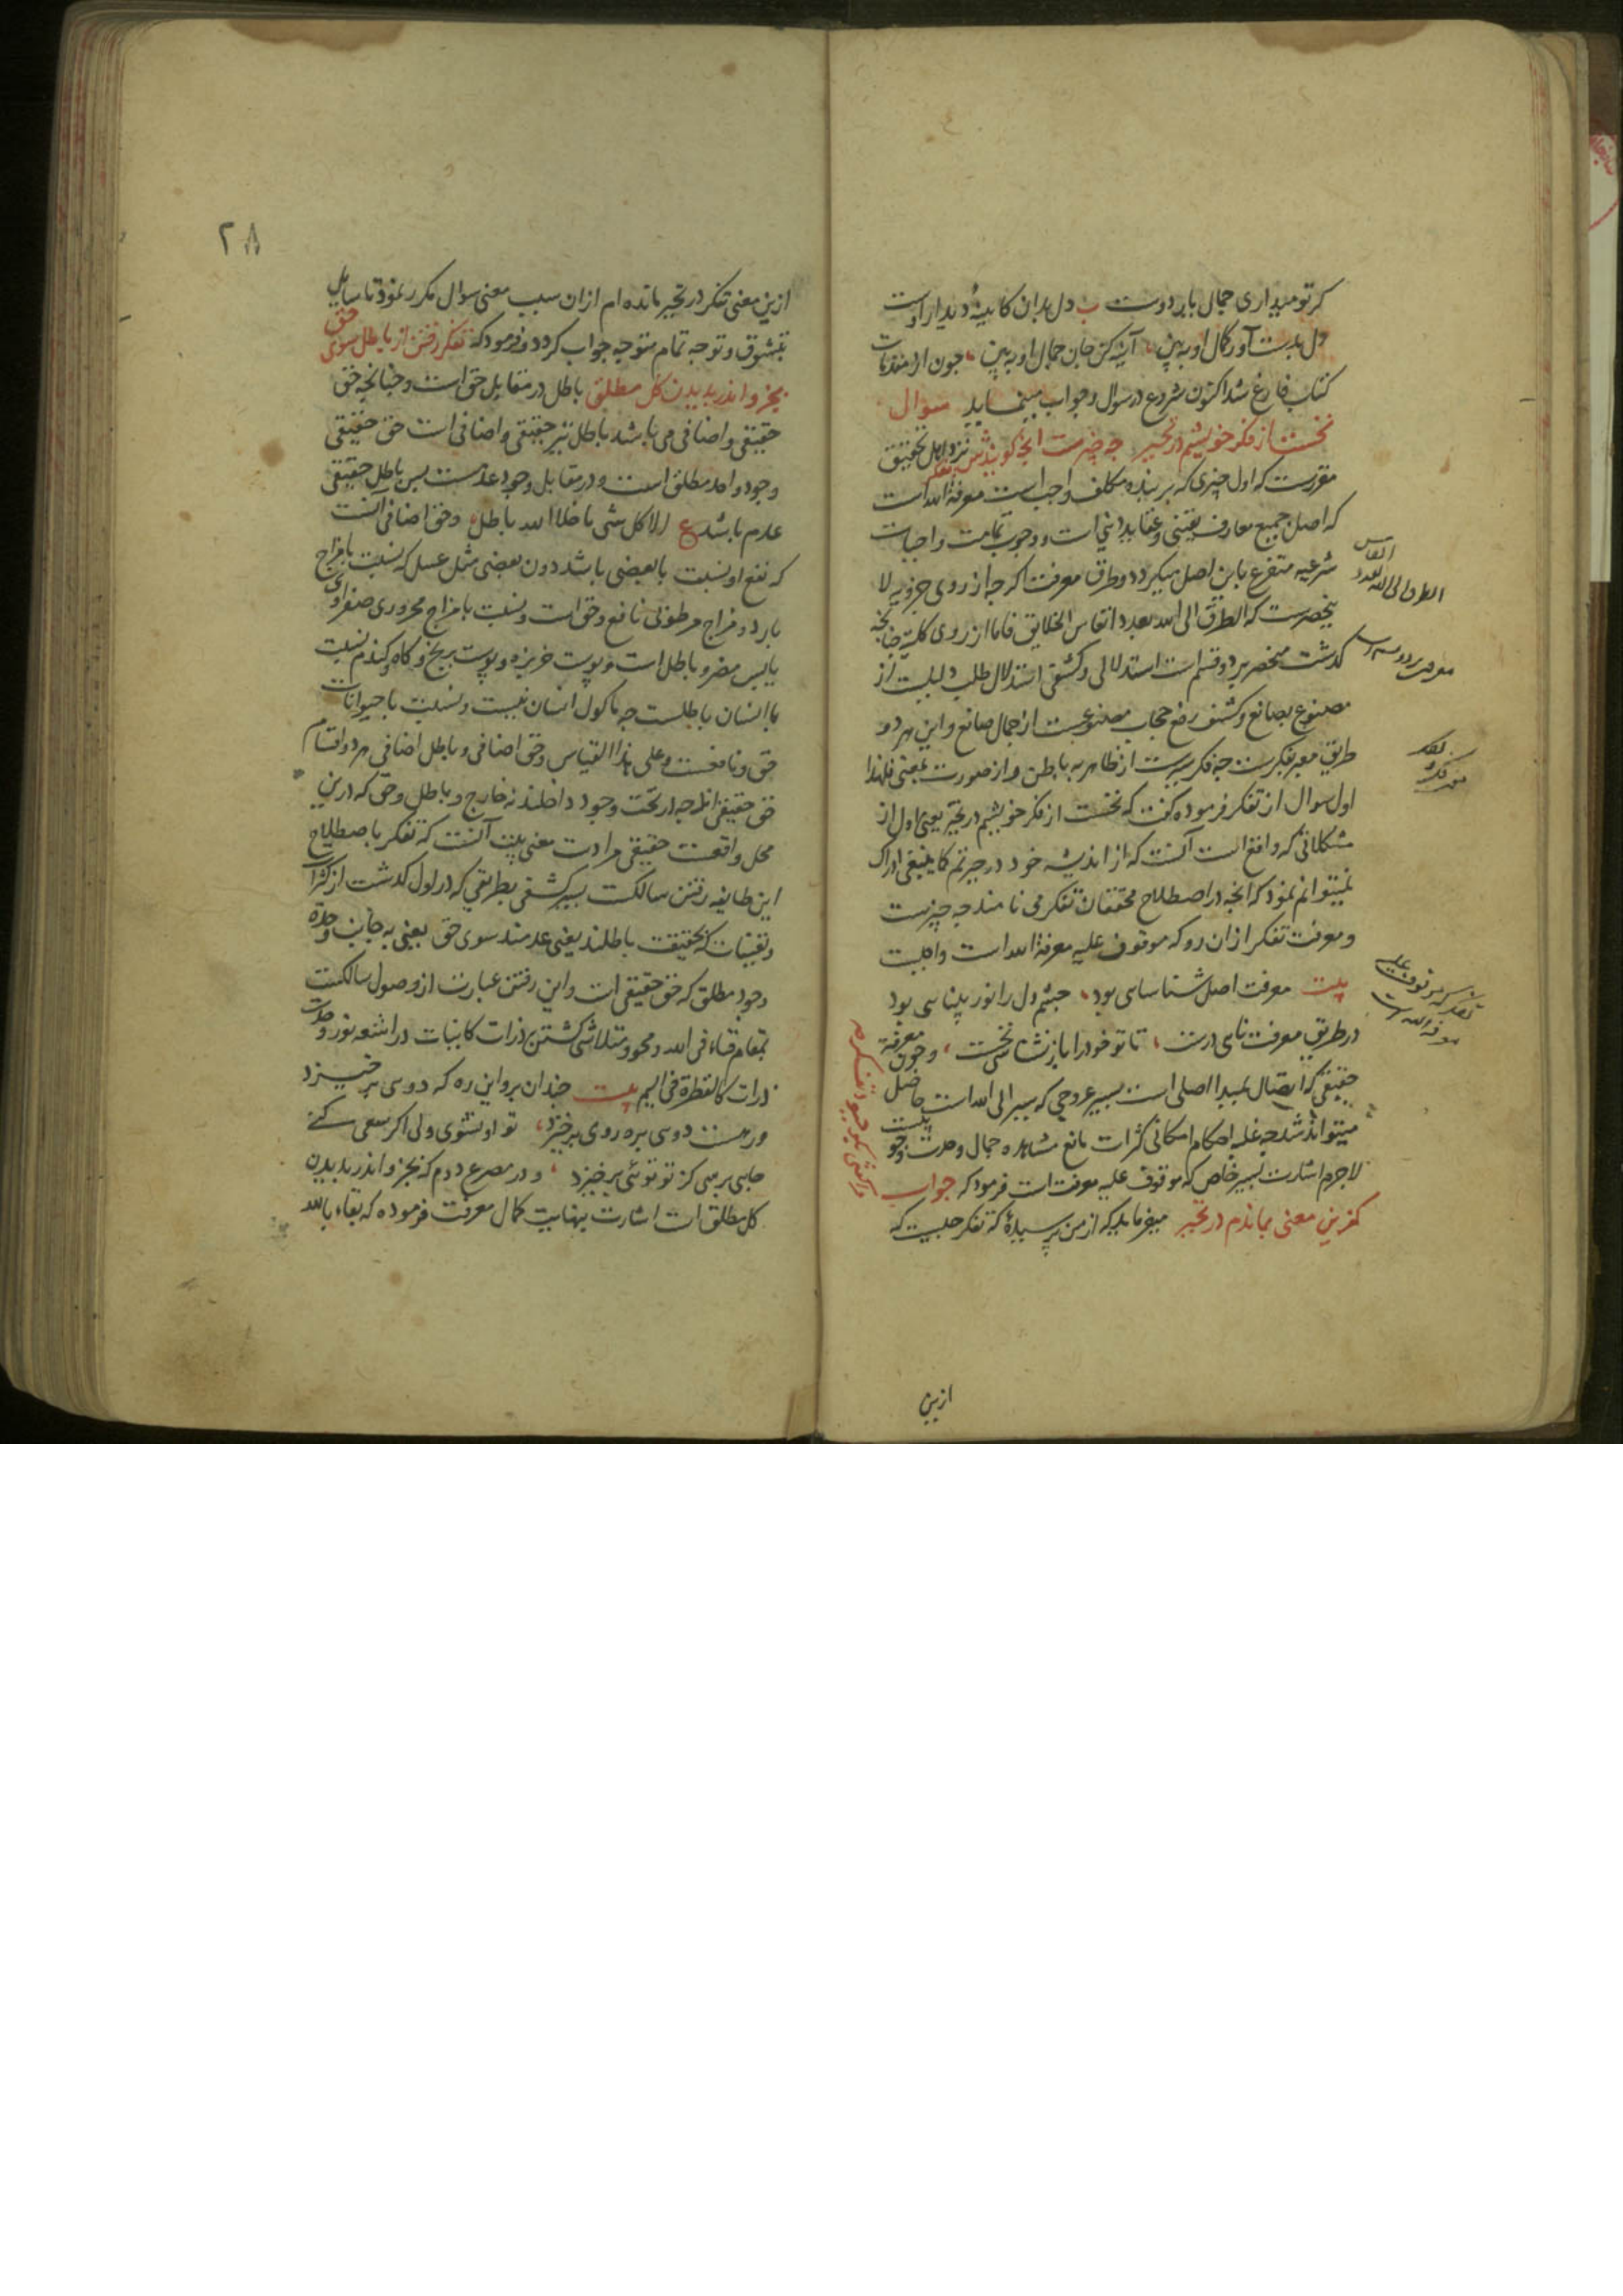 کر تو میداری جمال یار دوست ب دل بدان کایینهٔ دیدار اوست
دل بدست آور کمال او ببین آینه کن جان جمال او ببین چون از مقدمات
کتاب فارغ شد اکنون شروع در سوال و جواب مینماید سوال
نخست از فکر خویشم در تحیر چه چیزست آنچه گویندش تفکر نزد اهل تحقیق
مقررست که اول چیزی که بر بنده مکلف واجب است معرفة الله است
که اصل جمیع معارف یقینی و عقاید دینی است و وجوب تمامت واجبات
شرعیه متفرع باین اصل میکردد و طرق معرفت اکرچه از روی جزویه لا
ینحصرست که الطرق الی الله بعدد انفاس الخلایق فاما از روی کلیه چنانچه
کدشت منحصر بر دو قسم است استدلالی و کشفی استدلال طلب دلیلست از
مصنوع بصانع و کشف رفع حجاب مصنوعیست از جمال صانع و این هر دو
طریق معبر بفکرست چه فکر سیرست از ظاهر به باطن و از صورت بمعنی فلهذا
اول سوال از تفکر فرموده کفت که نخست از فکر خویشم در تحیر یعنی اول از
مشکلاتی که واقع است آنست که از اندیشه خود در حیرتم کما ینبغی ادراک
نمیتوانم نمود که آنچه در اصطلاح محققان تفکر می نامند چه چیزست
و معرفت تفکر از آن رو که موقوف علیه معرفة الله است واجبست
بیت معرفت اصل شناسایی بود چشم دل را نور بینایی بود
در طریق معرفت نایی درست تا تو خود را باز نشناسی نخست و چون معرفة
حقیقی که اتصال بمبدا اصلی است بسیر عروجی که سیر الی الله است حاصل
میتواند شد چه غلبه احکام امکانی کثرات مانع مشاهده جمال وحدت
لاجرم اشارت بسیر خاص که موقوف علیه معرفت است فرمود که جواب
کزین معنی بماندم در تحیر میفرماید که از من پرسیدهٔ که تفکر چیست که
الطرق الی الله بعدد
انفاس
تفکر که موقوف علیه
معرفة الله است
ازین
۲۸
ازین معنی تفکر در تحیر مانده ام ازان سبب معنی سوال مکرر نمود تا سایل
بتشوق و توجه تمام متوجه جواب کردد و فرمود که تفکر رفتن از باطل سوی حق
بجزو اندر بدیدن کل مطلق باطل در مقابل حق است و چنانچه حق
حقیقی و اضافی می باشد باطل نیز حقیقی و اضافی است حق حقیقی
وجود واحد مطلق است و در مقابل وجود عدمست پس باطل حقیقی
عدم باشد ع الا کل شی ما خلا الله باطل وحق اضافی آنست
که نفع او نسبت بابعضی باشد دون بعضی مثل عسل که نسبت بامزاج
بارد و مزاج مرطوبی نافع و حق است و نسبت بامزاج محروری صفراوی
یابس مضر و باطل است و پوست خربزه و پوست برنج و کاه کندم نسبت
باانسان باطلست چه ماکول انسان نیست و نسبت باحیوانات
حق و نافعست و علی هذا القیاس وحق اضافی و باطل اضافی هر دو اقسام
حق حقیقی اند چه در تحت وجود داخلند نه خارج و باطل و حق که درین
محل واقعست حقیقی مرادست معنی بیت آنست که تفکر باصطلاح
این طایفه رفتن سالکست بسیر کشفی بطریقی که در اول کدشت از کثرات
و تعینات که بحقیقت باطلند یعنی عدمند سوی حق یعنی به جانب وحدة
وجود مطلق که حق حقیقی است و این رفتن عبارت از وصول سالکست
بمقام فناء فی الله و محو و متلاشی کشتن ذرات کاینات در اشعه نور وحدت
ذرات کالقطرة فی الیم بیت چندان برو این ره که دویی برخیزد
ور هست دویی بره روی برخیزد تو او نشوی ولی اکر سعی کنی
جایی برسی کز تو توئی برخیزد و در مصرع دوم که بجزو اندر بدیدن
کل مطلق است اشارت بنهایت کمال معرفت فرموده که بقاء بالله